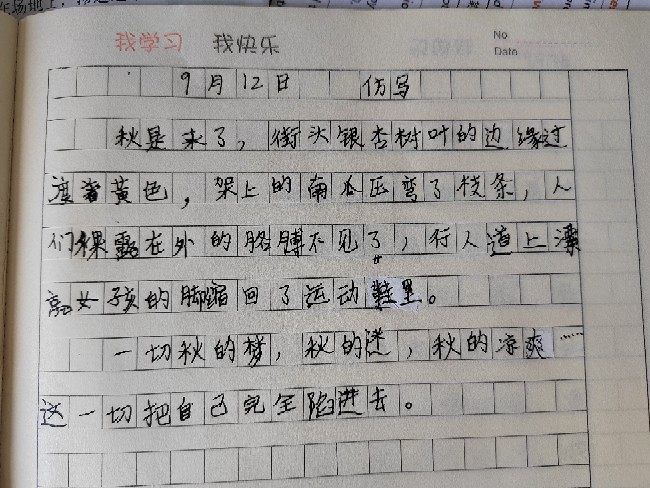 我学习 我快乐
No
Date
9月12日 仿写
秋是来了,街头银杏树叶的边缘过
渡着黄色,架上的南瓜压弯了枝条,人
们裸露在外的胳膊不见了,行人道上漂
亮女孩的脚缩回了运动鞋里。
一切秋的梦,秋的迷,秋的凉爽……
这一切把自己完全陷进去。